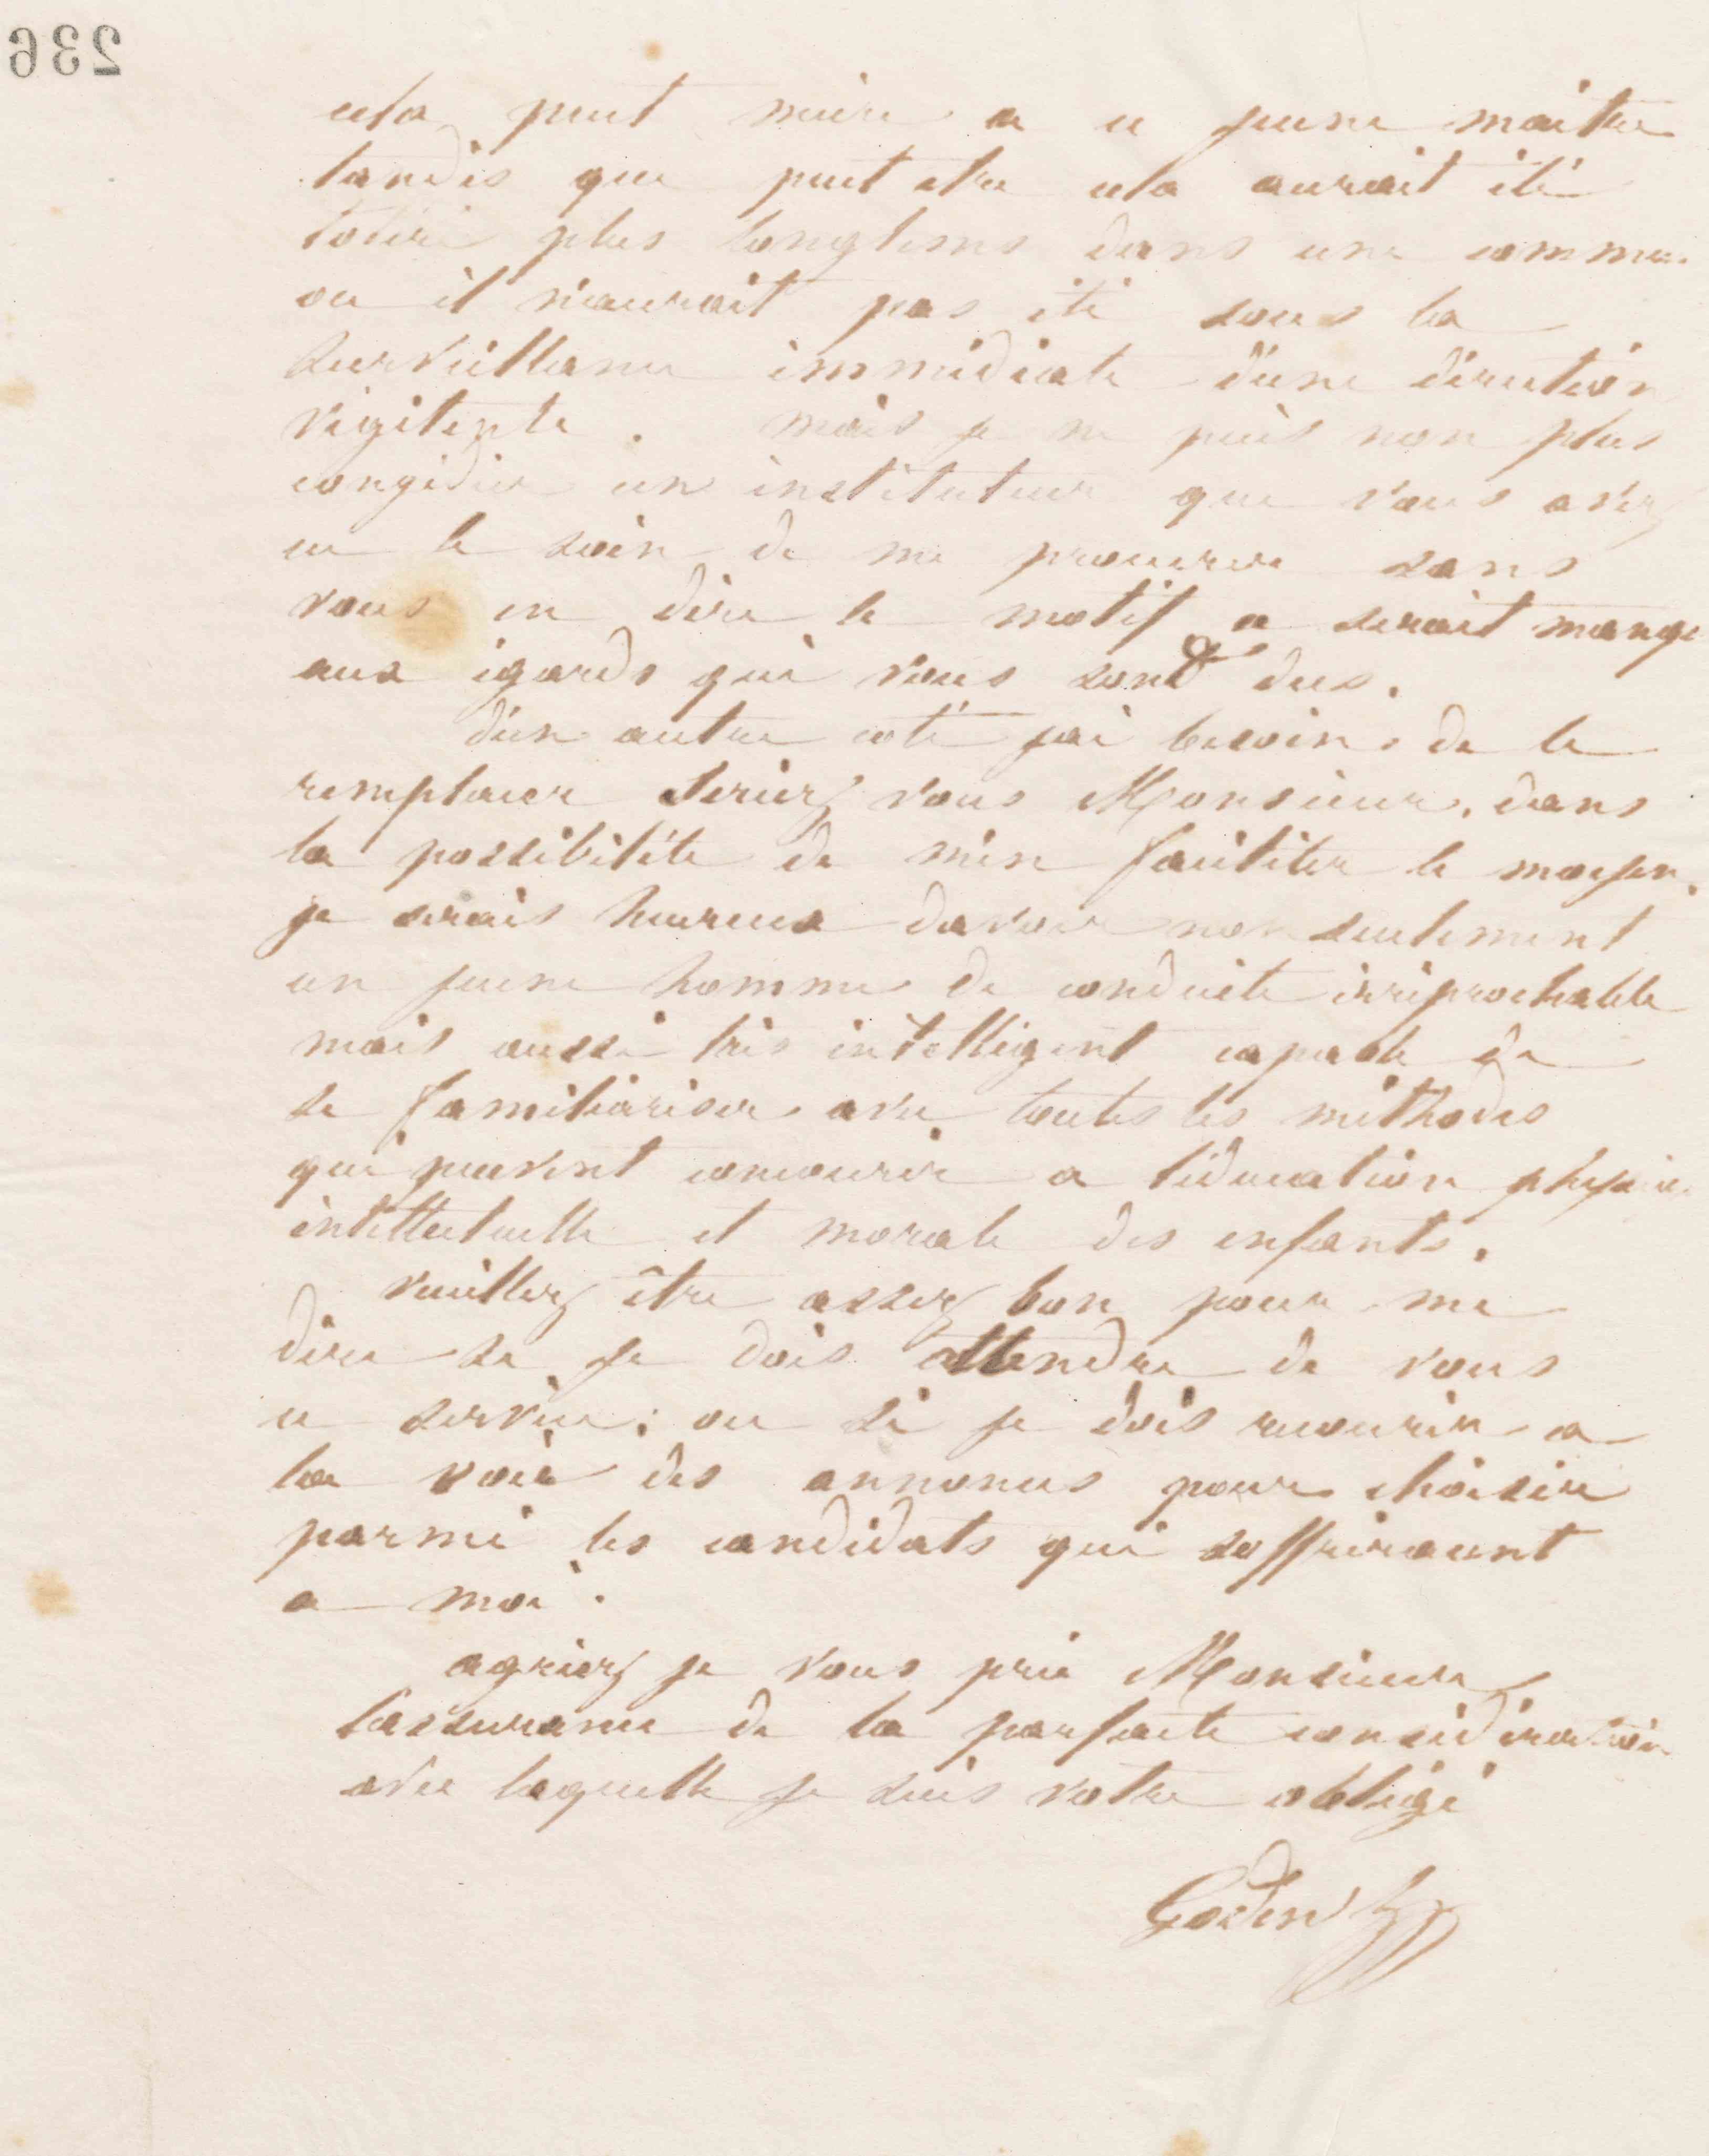 236
cela peut nuire a ce jeune maitre
tandis que peut etre cela aurait été
toléré plus longtems dans une commu
ou il n'aurait pas été sous la
surveillance immédiate d'une direction
vigilente. mais je ne puis non plus
congédier un instituteur que vous avez
eu le soin de me procurer sans
vous en dire le motif ce serait manqu
aux égards qui vous sont dus.
d'un autre coté jai besoin de le
remplacer Seriez vous Monsieur, dans
la possibilité de m'en faciliter le moyen.
je serais heureux davoir non seulement
un jeune homme de conduite irréprochable
mais aussi très intelligent capable de
se familiariser avec toutes les méthodes
qui peuvent concourir a l'éducation physi
intellectuelle et morale des enfants.
Veuillez être assez bon pour me
dire se je dois attendre de vous
ce service; ou si je dois recourir a
la voie des annonces pour choisir
parmi les candidats qui soffriraient
a moi.
agréez je vous prie Monsieur
l'assurance de la parfaite considération
avec laquelle je suis votre obligé
Godin